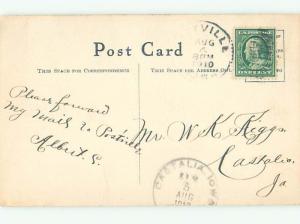 VILLE
AUG
8 PM
1910
U.S. POSTAGE
ONE CENT
Post Card
THIS SPACE FOR CORRESPONDENCE
THIS SPACE FOR ADDRESS ONLY
Please forward
my mail to Postville
Albert S.
Mr. W K
Castalia,
Ia
CASTALIA, IOWA
AUG
1910